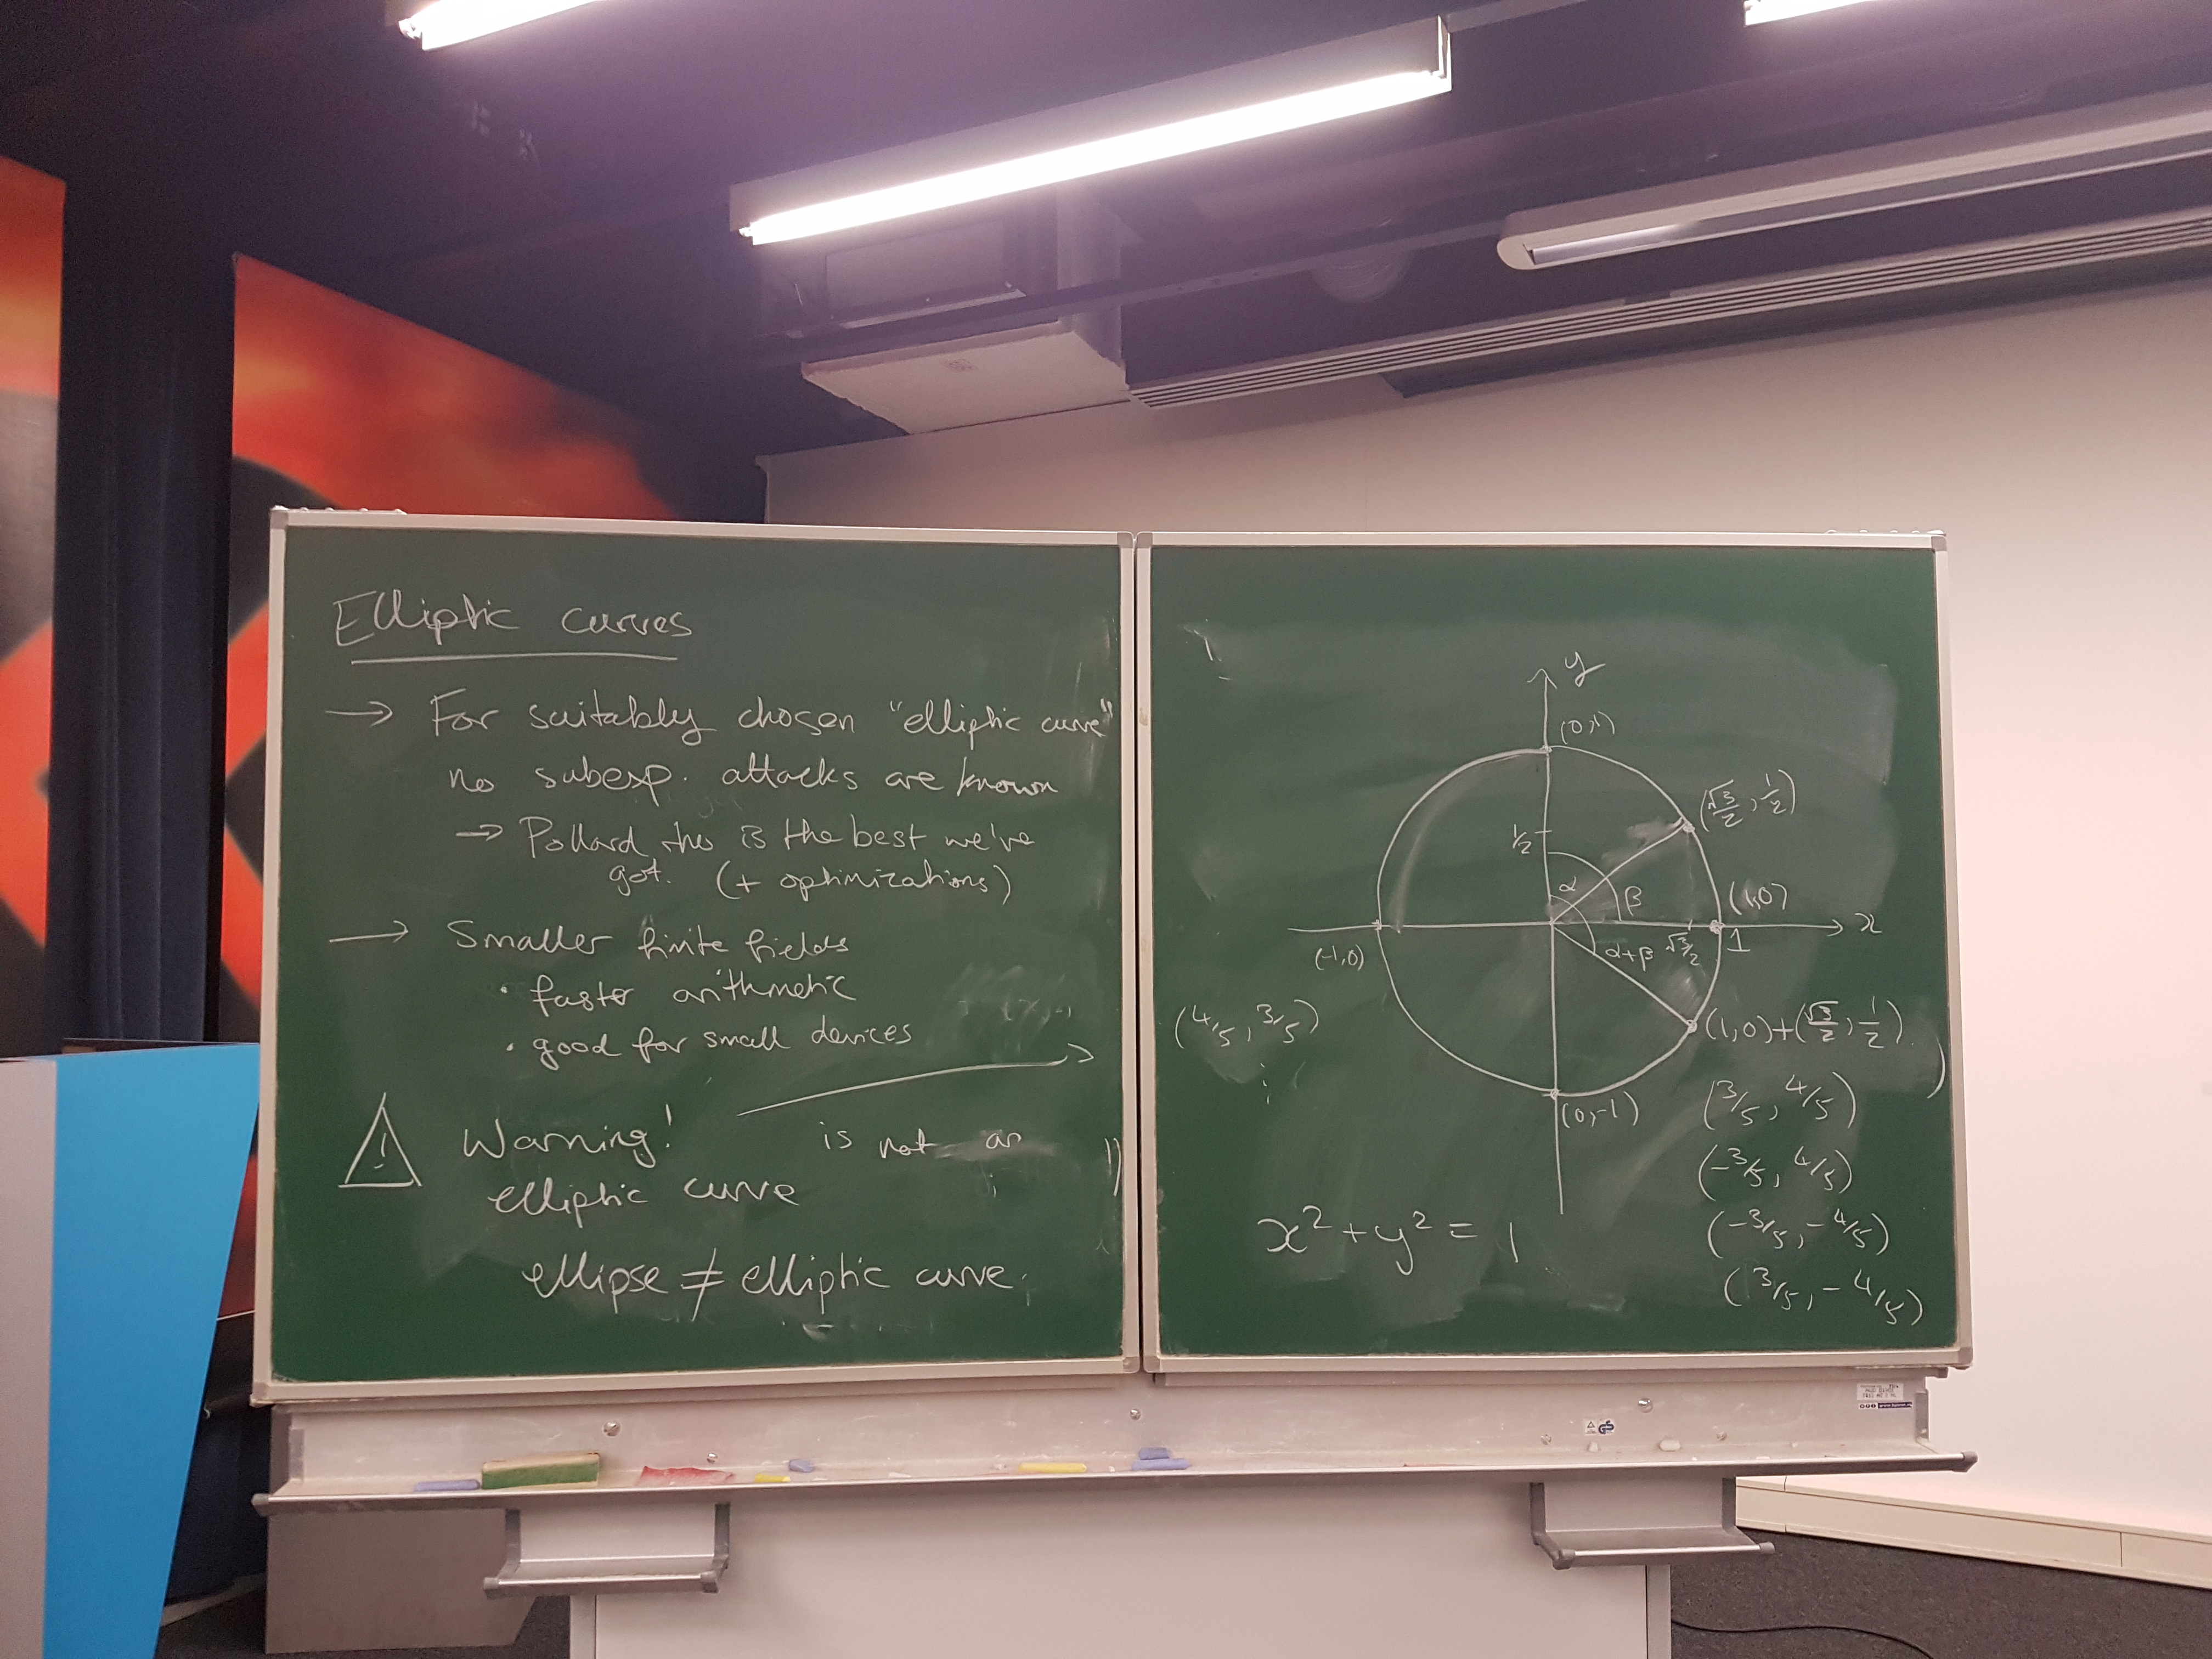 Elliptic curves
→ For suitably chosen "elliptic curve"
no subexp. attacks are known
→ Pollard rho is the best we've
got. (+ optimizations)
→ Smaller finite fields
• faster arithmetic
• good for small devices
Warning! → is not an
elliptic curve
ellipse ≠ elliptic curve.
y
(0,1)
(√3/2, 1/2)
1/2
α
β
(1,0)
x
(-1,0)
α+β
√3/2
1
(4/5, 3/5)
(1,0)+(√3/2, 1/2)
(3/5, 4/5)
(0,-1)
(-3/5, 4/5)
x² + y² = 1
(-3/5, -4/5)
(3/5, -4/5)